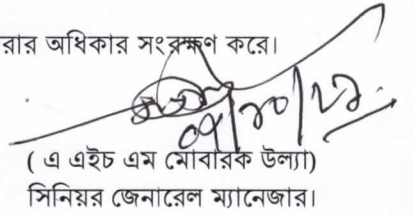 রার অধিকার সংরক্ষণ করে।
( এ এইচ এম মোবারক উল্যা)
সিনিয়র জেনারেল ম্যানেজার।